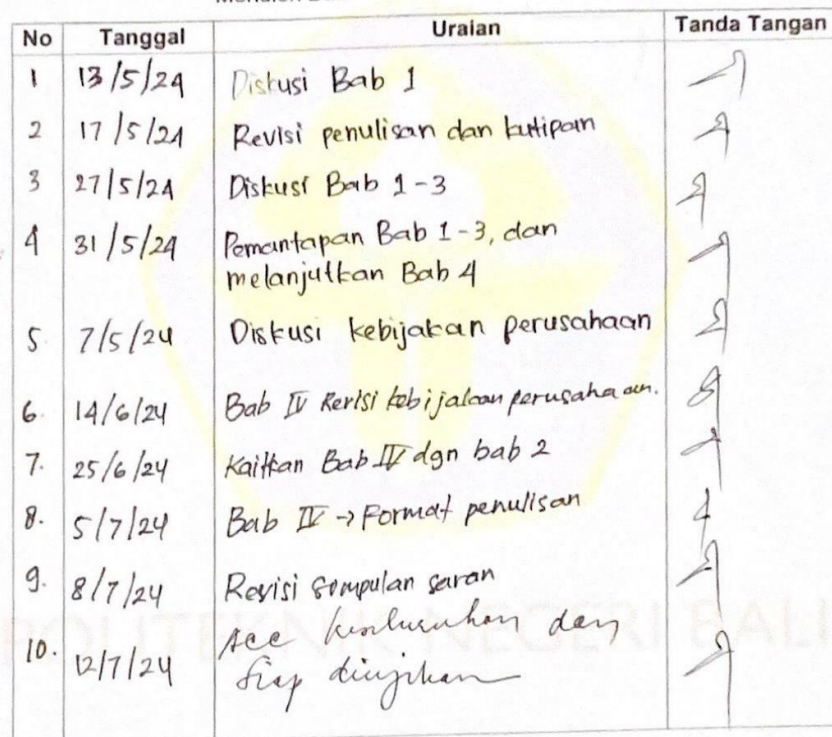 No Tanggal Uraian Tanda Tangan
1 13/5/24 Diskusi Bab 1
2 17/5/24 Revisi penulisan dan kutipan
3 27/5/24 Diskusi Bab 1-3
4 31/5/24 Pemantapan Bab 1-3, dan
melanjutkan Bab 4
5. 7/5/24 Diskusi kebijakan perusahaan
6. 14/6/24 Bab IV Revisi kebijakan perusahaan.
7. 25/6/24 Kaitkan Bab IV dgn bab 2
8. 5/7/24 Bab IV → Format penulisan
9. 8/7/24 Revisi simpulan saran
10. 12/7/24 Acc keseluruhan dan
siap diujikan
POLITEKNIK NEGERI BALI